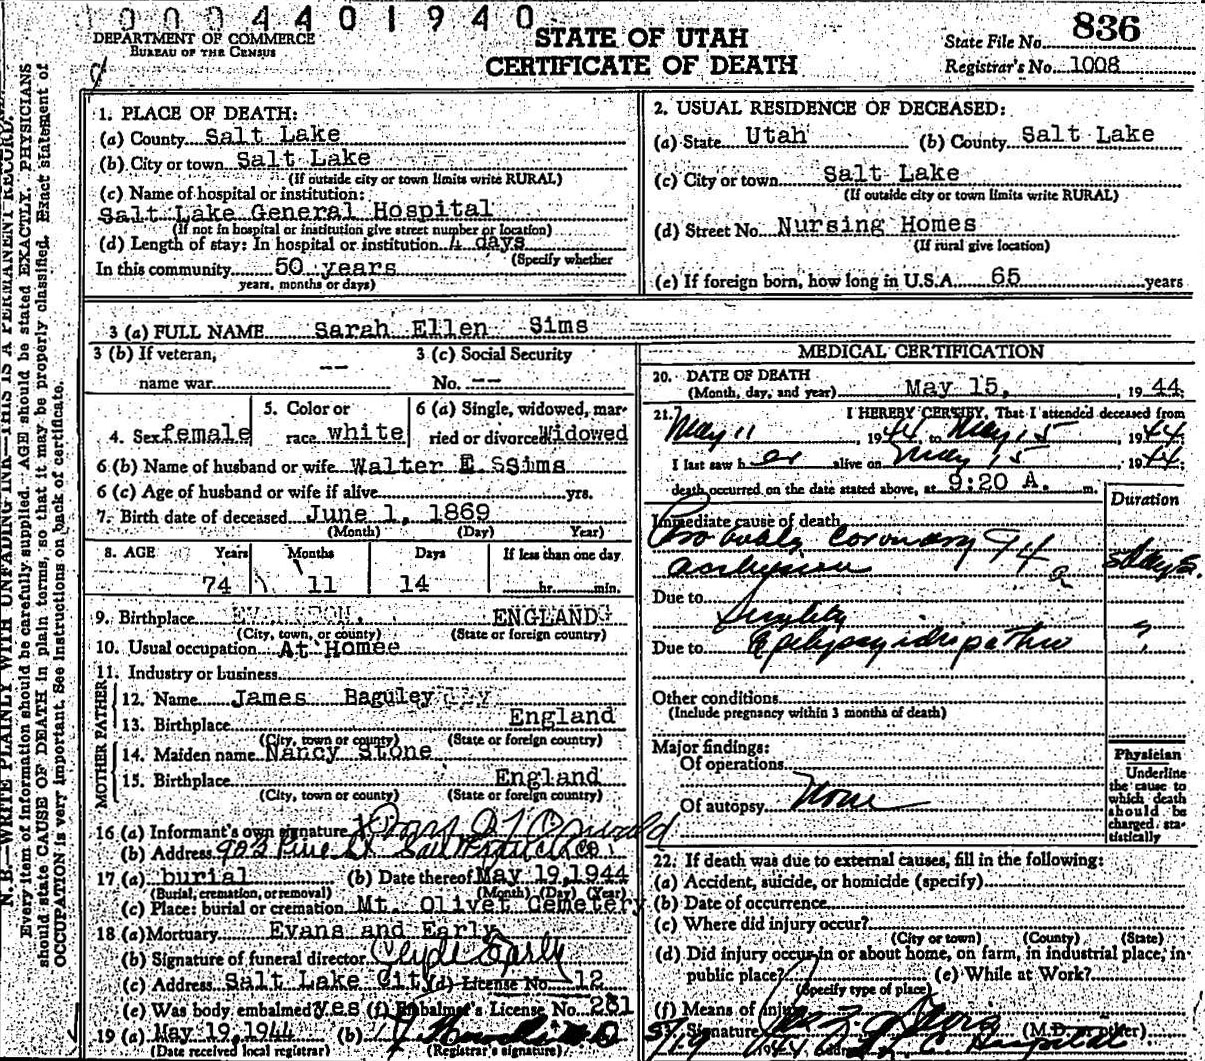 1 0 0 0 4 4 0 1 9 4 0
DEPARTMENT OF COMMERCE
BUREAU OF THE CENSUS
STATE OF UTAH
CERTIFICATE OF DEATH
State File No. 836
Registrar's No. 1008
N. B.—WRITE PLAINLY WITH UNFADING INK—THIS IS A PERMANENT RECORD.
Every item of information should be carefully supplied. AGE should be stated EXACTLY. PHYSICIANS
should state CAUSE OF DEATH in plain terms, so that it may be properly classified. Exact statement of
OCCUPATION is very important. See instructions on back of certificate.
1. PLACE OF DEATH:
(a) County Salt Lake
(b) City or town Salt Lake
(If outside city or town limits write RURAL)
(c) Name of hospital or institution:
Salt Lake General Hospital
(If not in hospital or institution give street number or location)
(d) Length of stay: In hospital or institution 4 days
(Specify whether
In this community 50 years
years, months or days)
2. USUAL RESIDENCE OF DECEASED:
(a) State Utah (b) County Salt Lake
(c) City or town Salt Lake
(If outside city or town limits write RURAL)
(d) Street No. Nursing Homes
(If rural give location)
(e) If foreign born, how long in U.S.A. 65 years
3 (a) FULL NAME Sarah Ellen Sims
3 (b) If veteran,
name war --
3 (c) Social Security
No. --
4. Sex female
5. Color or
race white
6 (a) Single, widowed, mar-
ried or divorced Widowed
6 (b) Name of husband or wife Walter E. SSims
6 (c) Age of husband or wife if alive yrs.
7. Birth date of deceased June 1, 1869
(Month) (Day) Year)
8. AGE Years Months Days If less than one day
74 11 14 hr. min.
9. Birthplace ENGLAND
(City, town, or county) (State or foreign country)
10. Usual occupation At Homee
11. Industry or business
FATHER
12. Name James Baguley
13. Birthplace England
(City, town or county) (State or foreign country)
MOTHER
14. Maiden name Nancy Stone
15. Birthplace England
(City, town or county) (State or foreign country)
16 (a) Informant's own signature
(b) Address 903 Pine St
17 (a) burial (b) Date thereof May 19, 1944
(Burial, cremation, or removal) (Month) (Day) (Year)
(c) Place: burial or cremation Mt. Olivet Cemetery
18 (a) Mortuary Evans and Early
(b) Signature of funeral director Clyde Early
(c) Address Salt Lake City (d) License No. 12
(e) Was body embalmed yes (f) Embalmer's License No. 281
19 (a) May 19, 1944 (b)
(Date received local registrar) (Registrar's signature)
MEDICAL CERTIFICATION
20. DATE OF DEATH
(Month, day, and year) May 15, 1944
21. I HEREBY CERTIFY, That I attended deceased from
May 11, 1944, to May 15 1944
I last saw her alive on May 15 1944
death occurred on the date stated above, at 9:20 A. m.
Duration
Immediate cause of death
Probably coronary 94
occlusion a 5 days
Due to Senility
Due to Epilepsy idiopathic ?
Other conditions
(Include pregnancy within 3 months of death)
Major findings:
Of operations
Of autopsy None
Physician
Underline
the cause to
which death
should be
charged sta-
tistically
22. If death was due to external causes, fill in the following:
(a) Accident, suicide, or homicide (specify)
(b) Date of occurrence
(c) Where did injury occur?
(City or town) (County) (State)
(d) Did injury occur in or about home, on farm, in industrial place, in
public place? (e) While at Work?
(Specify type of place)
(f) Means of injury
Signature (M.D. or other)
5/19 1944 Hospital